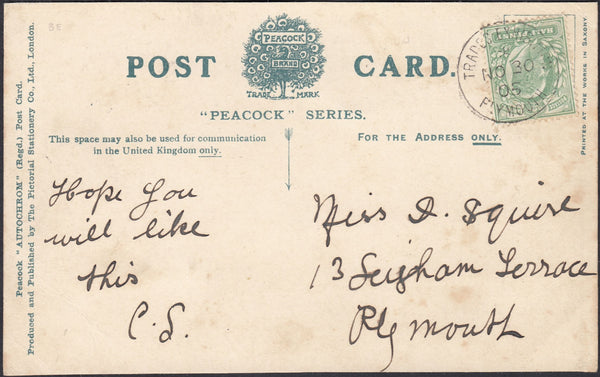 BE
PEACOCK
BRAND
TRADE MARK
POST CARD.
"PEACOCK" SERIES.
This space may also be used for communication
in the United Kingdom only.
FOR THE ADDRESS ONLY.
Peacock "AUTOCHROM" (Regd.) Post Card.
Produced and Published by The Pictorial Stationery Co., Ltd., London.
PRINTED AT THE WORKS IN SAXONY.
NO 30
05
PLYMOUTH
HALFPENNY
Hope you
will like
this
C.S.
Miss D. Squire
13 Leigham Terrace
Plymouth